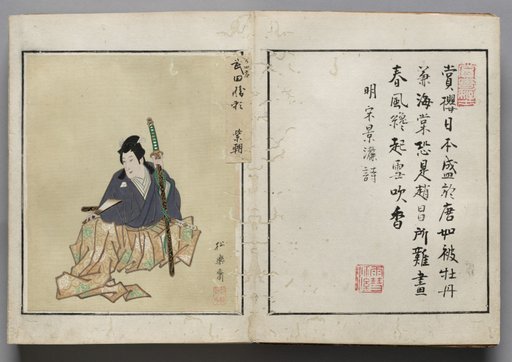 賞櫻日本盛於唐如被牡丹
兼海棠恐是趙昌所難畫
春風纔起雪吹香
明宋景濂詩
武田勝頼 紫朝